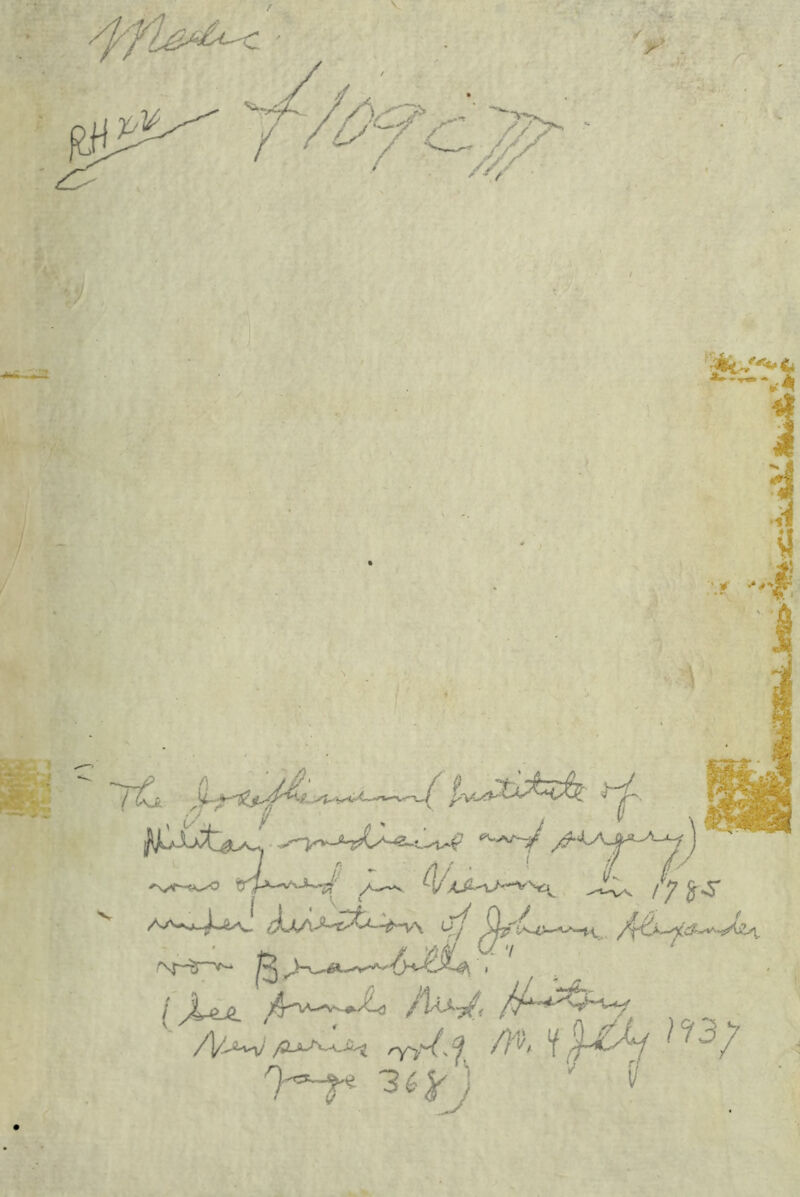 Medic
RHxx
f 109 c
"The Josephinum (Institute of
Military medicine and surgery)
was opened in Vienna in 1785
under direction of Johann Alexander
von Brambilla."
(See Annals Med. History
New series vol. 9 No. 4 July 1937
Page 368)